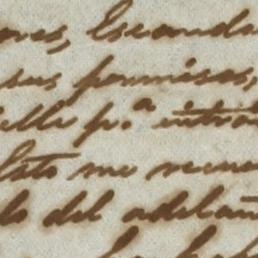 ones, Escanda
sus promisas,
elle p.ª introd
lato me renu
lo del adelan